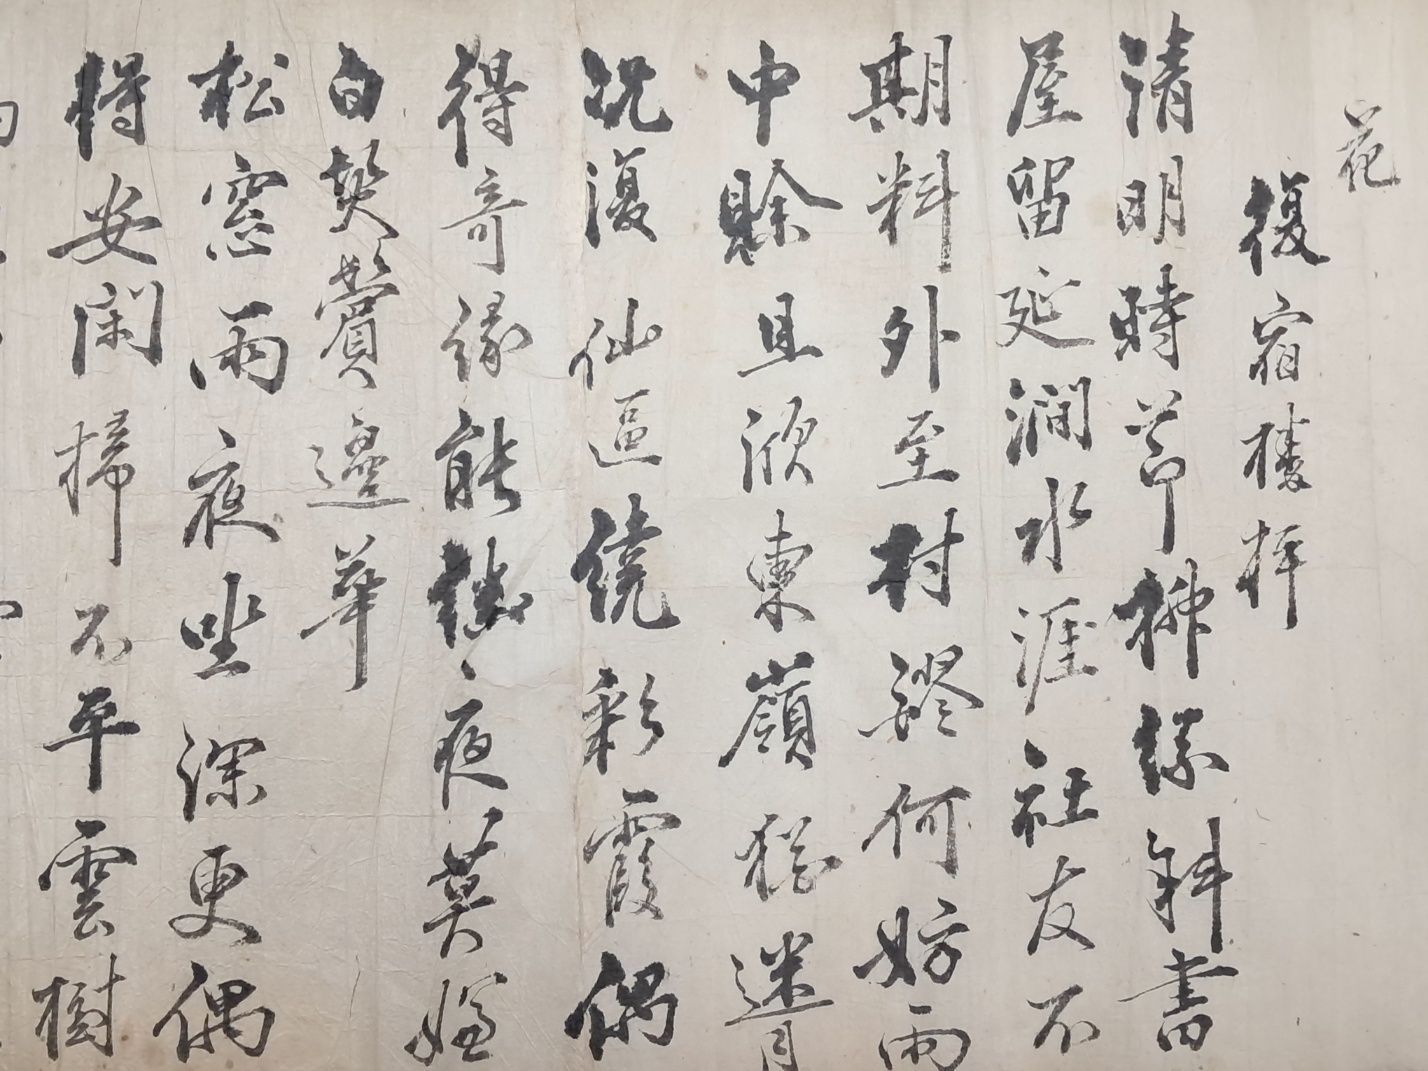 花
復宿樓拝
清明時節柳絲斜書
屋留延澗水涯社友不
期料外至村醪何妨雨
中賒且欣東嶺猶迷月
况復仙逼繞彩霞偶
得奇緣能機夜莫嫌
白髮鬢邊華
松窓雨夜坐深更偶
得安閑掃不平雲樹